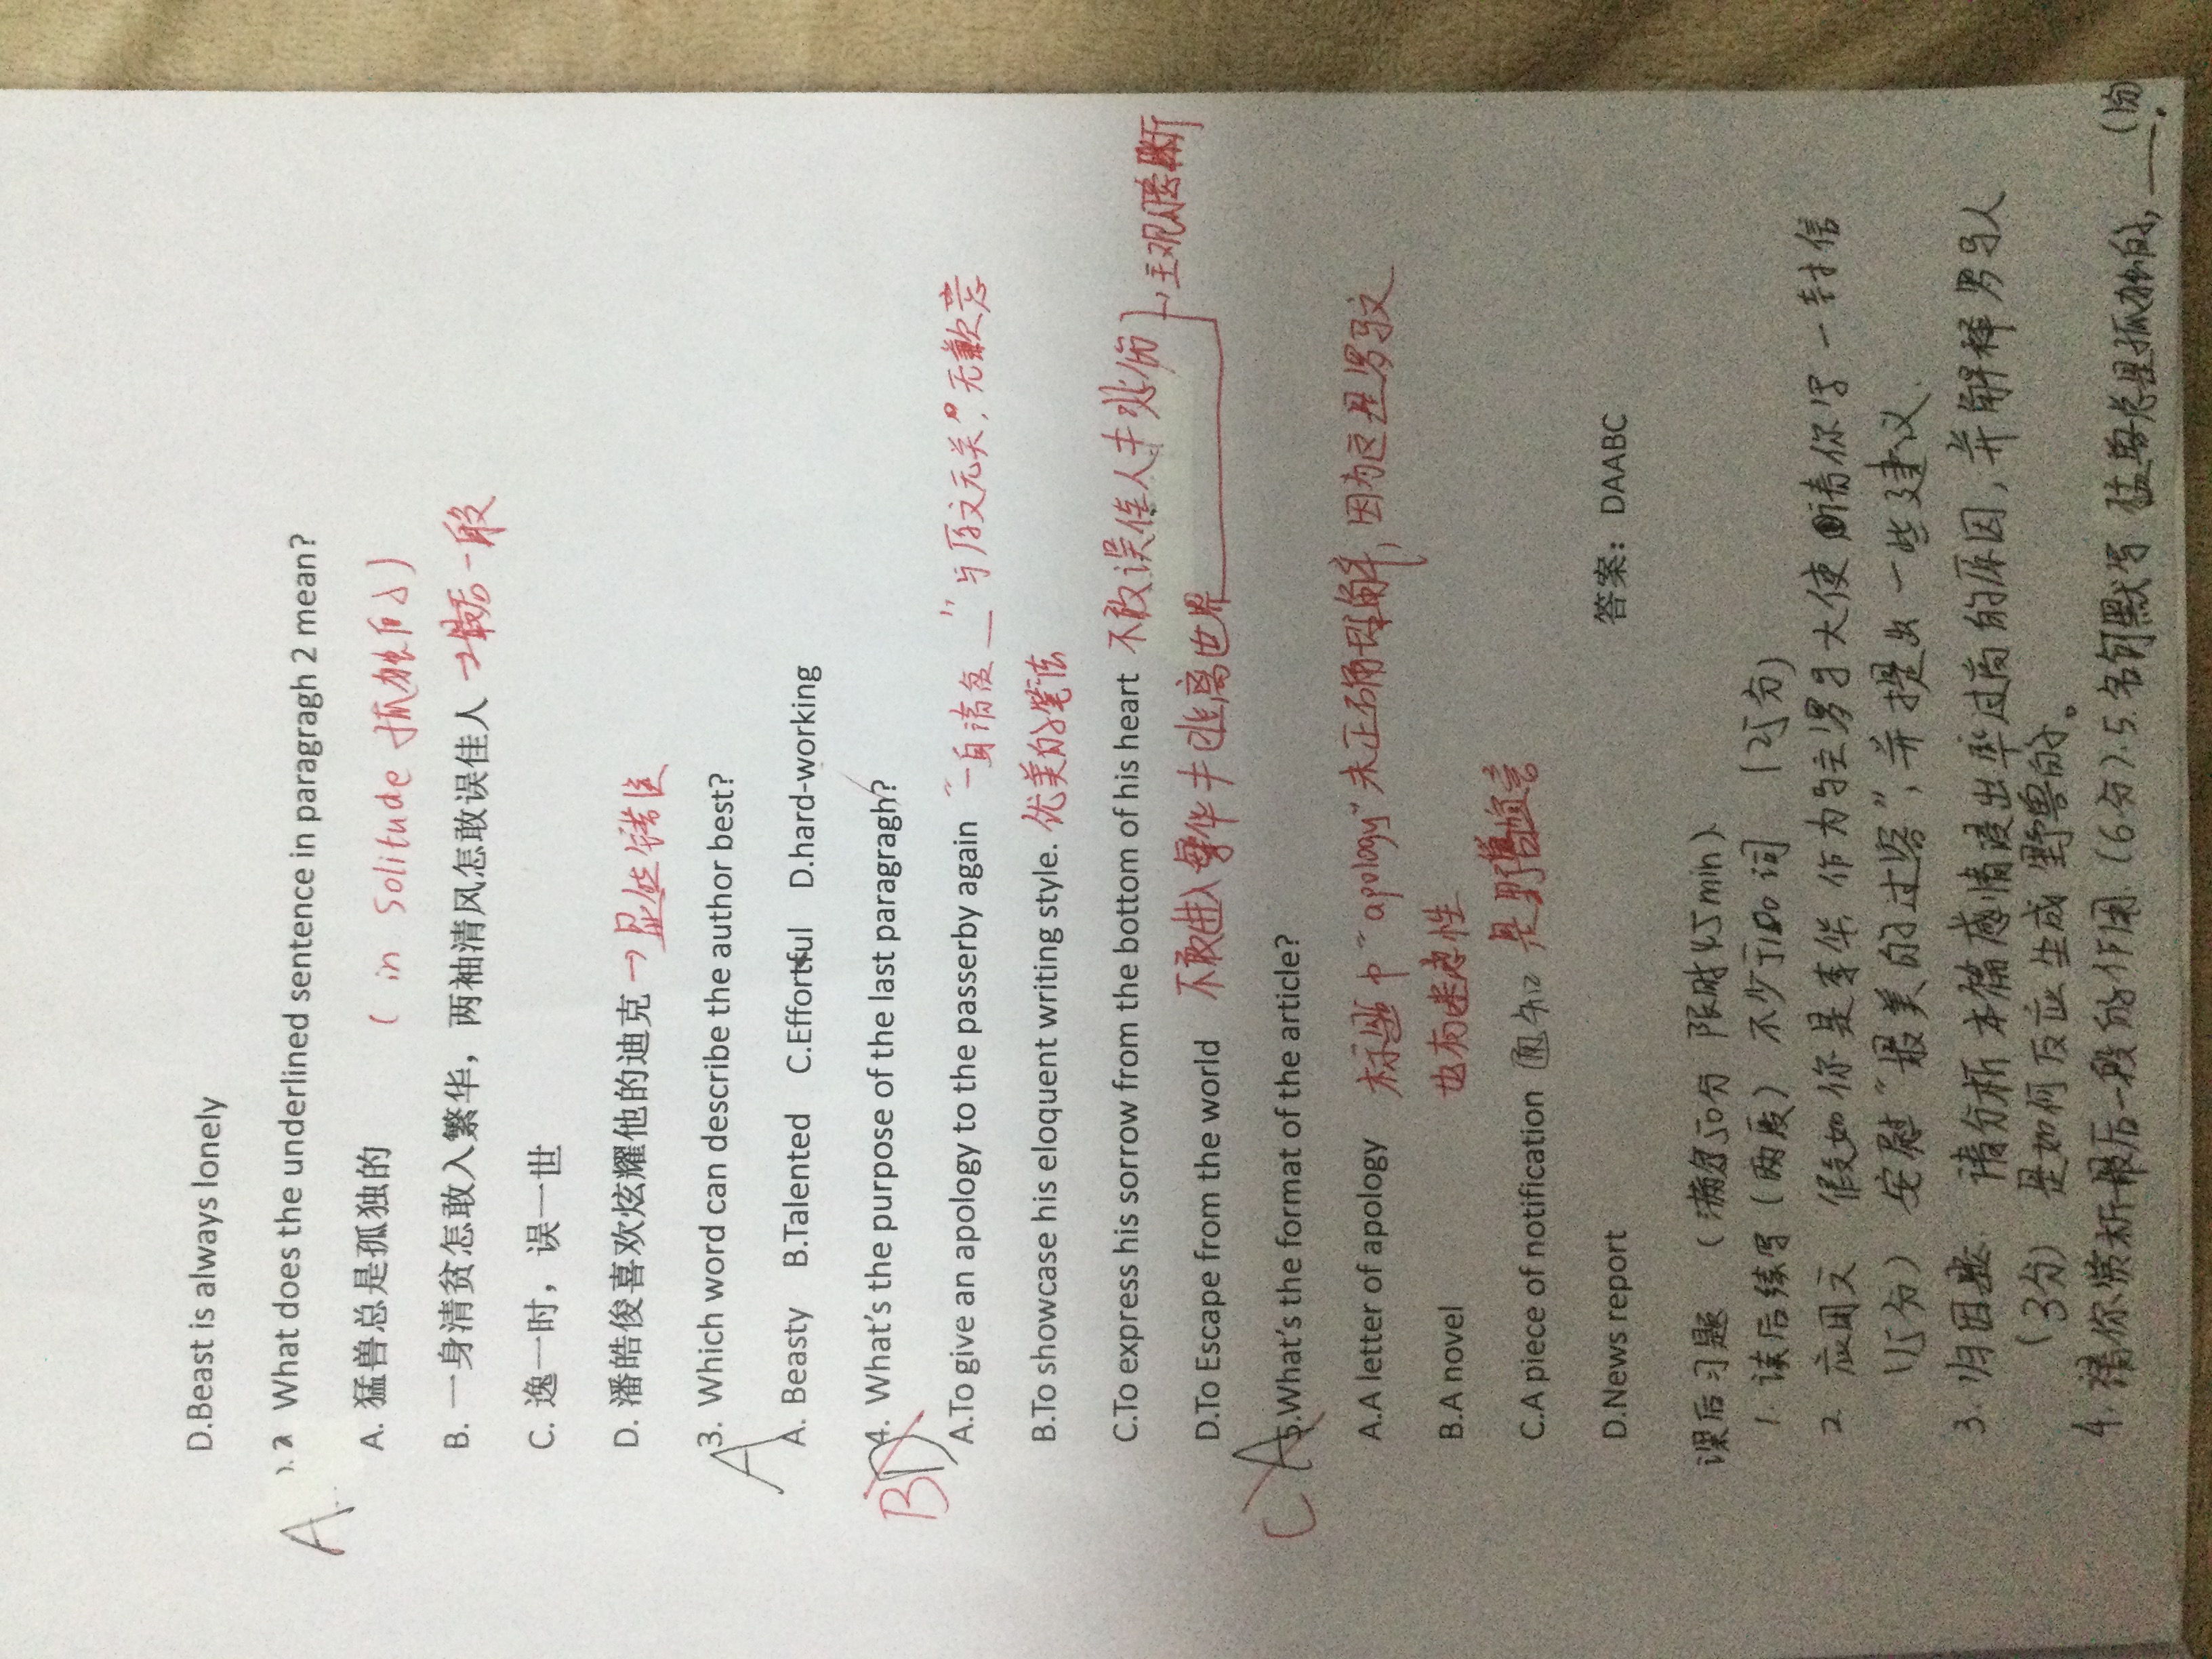 D.Beast is always lonely
A 2 What does the underlined sentence in paragragh 2 mean?
A. 猛兽总是孤独的 (in solitude 孤独的)
B. 一身清贫怎敢入繁华，两袖清风怎敢误佳人 →最后一段
C. 逸一时，误一世
D. 潘皓俊喜欢炫耀他的迪克 →显然错误
A 3. Which word can describe the author best?
A. Beasty B.Talented C.Effortful D.hard-working
B D 4. What's the purpose of the last paragragh?
A.To give an apology to the passerby again "一身清贫__"与原文无关，无歉意
B.To showcase his eloquent writing style. 优美的笔法
C.To express his sorrow from the bottom of his heart 不敢误佳人≠悲伤
→主观臆断
D.To Escape from the world 不敢进入繁华≠逃离世界
C A 5.What's the format of the article?
A.A letter of apology 标题中"apology"未正确理解，因为这是罗马文
B.A novel 也有迷惑性
C.A piece of notification 通知 是野兽宣言
D.News report 答案：DAABC
课后习题 (满分50分 限时45min)
1. 读后续写(两段) 不少于100词 (25分)
2. 应用文 假如你是李华，作为罗马大使 请你写一封信
(15分) 安慰"最美的过客"，并提出一些建议.
3. 归因题. 请分析本篇感情浸出率过高的原因，并解释罗马人
(3分) 是如何反应生成野兽的。
4. 请你赏析最后一段的作用.(6分).5.名句默写 猛兽总是孤独的，___.(1分)